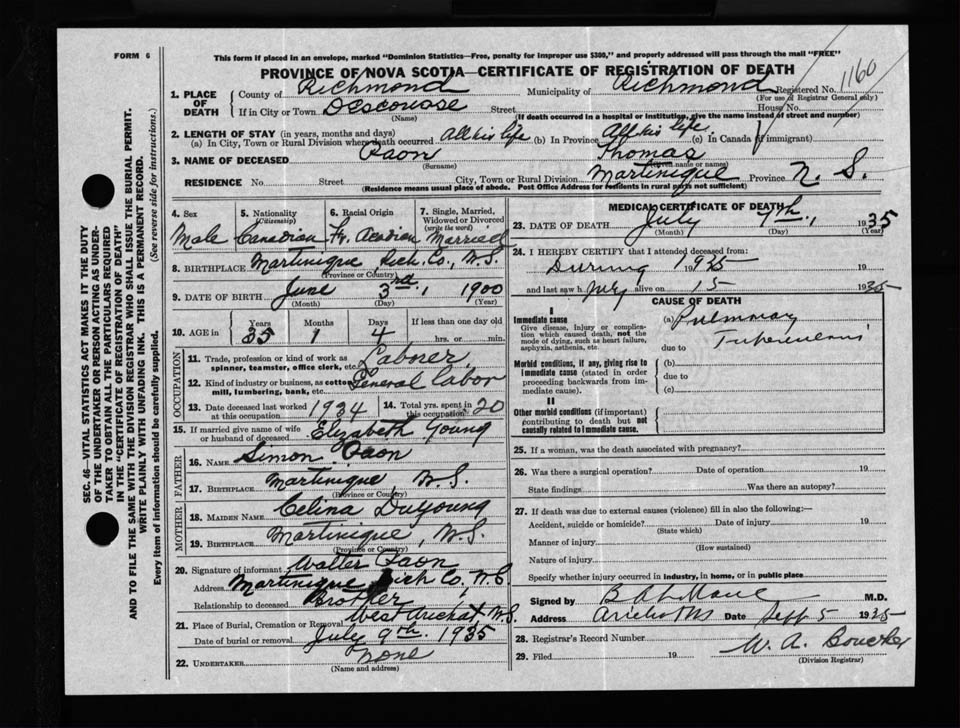 FORM 6
This form if placed in an envelope, marked "Dominion Statistics—Free, penalty for improper use $300," and properly addressed will pass through the mail "FREE"
PROVINCE OF NOVA SCOTIA—CERTIFICATE OF REGISTRATION OF DEATH
1. PLACE OF DEATH
County of Richmond Municipality of Richmond Registered No. 1160
(For use of Registrar General only)
If in City or Town Descouse Street House No.
(Name) (If death occurred in a hospital or institution, give the name instead of street and number)
2. LENGTH OF STAY (in years, months and days)
(a) In City, Town or Rural Division where death occurred All his life (b) In Province All his life. (c) In Canada (if immigrant)
3. NAME OF DECEASED Paon Thomas
(Surname) (Given name or names)
RESIDENCE No. Street City, Town or Rural Division Martinique Province N. S.
(Residence means usual place of abode. Post Office Address for residents in rural parts not sufficient)
4. Sex 5. Nationality (Citizenship) 6. Racial Origin 7. Single, Married, Widowed or Divorced (write the word)
Male Canadian Fr. Acadian Married
8. BIRTHPLACE Martinique Rich. Co., N.S.
(Province or Country)
9. DATE OF BIRTH June 3rd, 1900
(Month) (Day) (Year)
10. AGE in Years Months Days If less than one day old
35 1 4 hrs. or min.
OCCUPATION
11. Trade, profession or kind of work as spinner, teamster, office clerk, etc. Laborer
12. Kind of industry or business, as cotton mill, lumbering, bank, etc. General labor
13. Date deceased last worked at this occupation 1934 14. Total yrs. spent in this occupation 20
15. If married give name of wife or husband of deceased Elizabeth Young
FATHER
16. NAME Simon Paon
17. BIRTHPLACE Martinique, N.S.
(Province or Country)
MOTHER
18. MAIDEN NAME Celina DuYoung
19. BIRTHPLACE Martinique, N.S.
(Province or Country)
20. Signature of informant Walter Paon
Address Martinique Rich Co, N.S.
Relationship to deceased Brother
21. Place of Burial, Cremation or Removal West Arichat N.S.
Date of burial or removal July 9th. 1935
22. UNDERTAKER None
(Name and address)
MEDICAL CERTIFICATE OF DEATH
23. DATE OF DEATH July 7th, 1935
(Month) (Day) (Year)
24. I HEREBY CERTIFY that I attended deceased from:
During 1935 19
and last saw h July alive on 15 1935
CAUSE OF DEATH
I
Immediate cause (a) Pulmonary
Give disease, injury or complication which caused death, not the mode of dying, such as heart failure, asphyxia, asthenia, etc. due to Tuberculosis
Morbid conditions, if any, giving rise to immediate cause (stated in order proceeding backwards from immediate cause). (b) due to (c)
II
Other morbid conditions (if important) contributing to death but not causally related to immediate cause.
25. If a woman, was the death associated with pregnancy?
26. Was there a surgical operation? Date of operation 19
State findings Was there an autopsy?
27. If death was due to external causes (violence) fill in also the following:—
Accident, suicide or homicide? Date of injury 19
(State which)
Manner of injury
(How sustained)
Nature of injury
Specify whether injury occurred in industry, in home, or in public place
Signed by M.D.
Address Date Sept 5 1935
28. Registrar's Record Number
29. Filed 19 W. A.
(Division Registrar)
SEC. 46—VITAL STATISTICS ACT MAKES IT THE DUTY
OF THE UNDERTAKER OR PERSON ACTING AS UNDERTAKER TO OBTAIN ALL THE PARTICULARS REQUIRED
IN THE "CERTIFICATE OF REGISTRATION OF DEATH"
AND TO FILE THE SAME WITH THE DIVISION REGISTRAR WHO SHALL ISSUE THE BURIAL PERMIT.
WRITE PLAINLY WITH UNFADING INK. THIS IS A PERMANENT RECORD.
Every item of information should be carefully supplied. (See reverse side for instructions.)